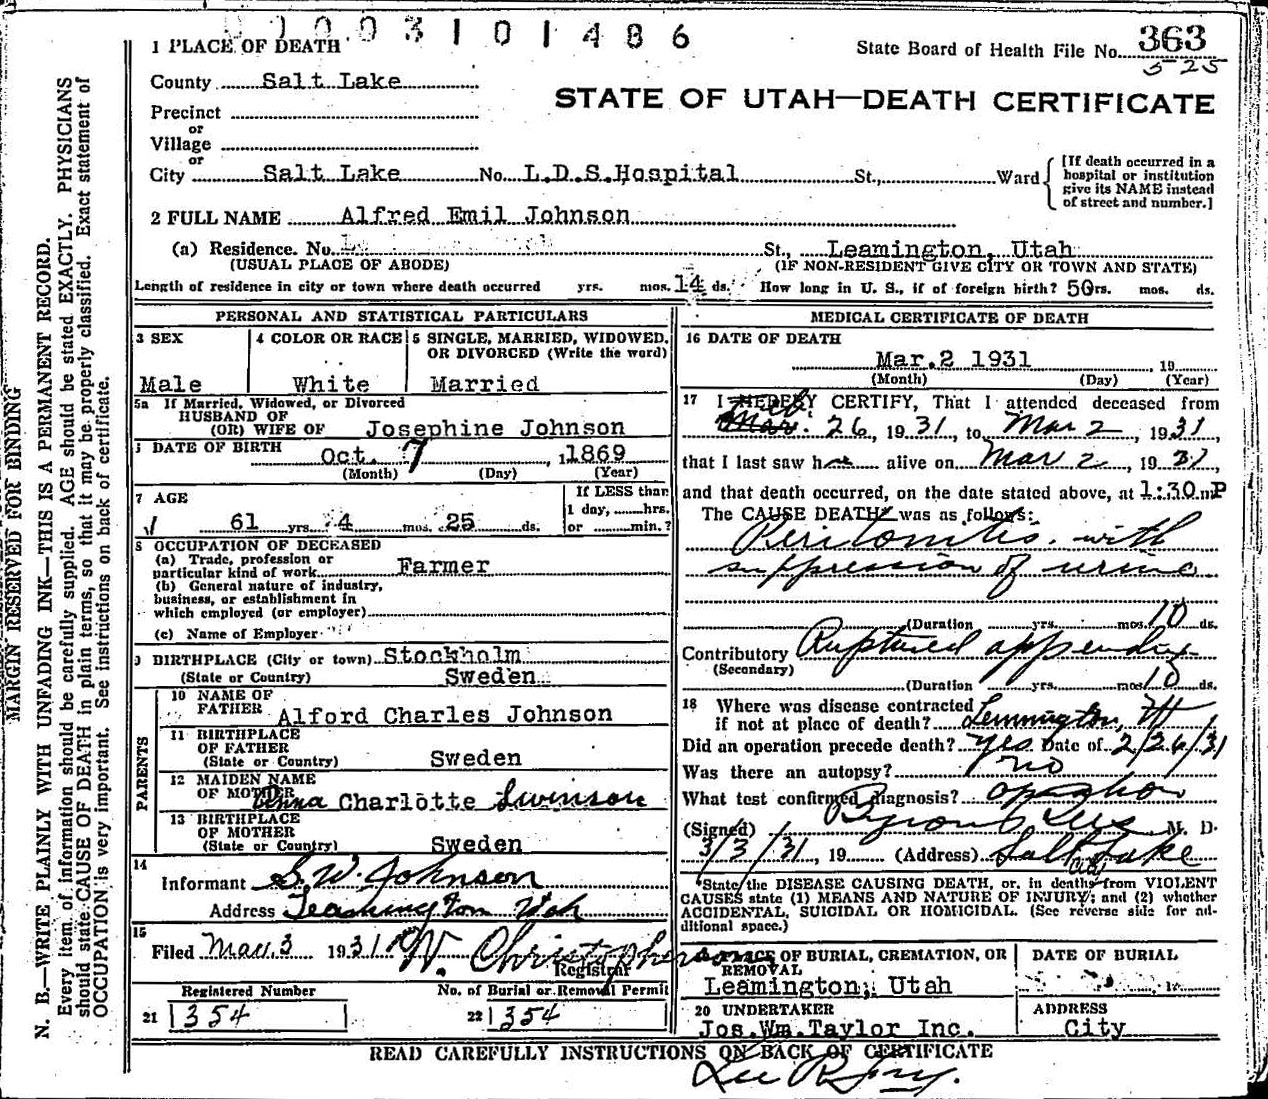 1003101486
1 PLACE OF DEATH
State Board of Health File No. 363
525
County Salt Lake
STATE OF UTAH—DEATH CERTIFICATE
Precinct
or
Village
or
City Salt Lake No. L.D.S.Hospital St., Ward
[If death occurred in a hospital or institution give its NAME instead of street and number.]
2 FULL NAME Alfred Emil Johnson
(a) Residence. No. St., Leamington, Utah
(USUAL PLACE OF ABODE) (IF NON-RESIDENT GIVE CITY OR TOWN AND STATE)
Length of residence in city or town where death occurred yrs. mos. 14 ds. How long in U. S., if of foreign birth? 50rs. mos. ds.
PERSONAL AND STATISTICAL PARTICULARS
3 SEX
Male
4 COLOR OR RACE
White
5 SINGLE, MARRIED, WIDOWED, OR DIVORCED (Write the word)
Married
5a If Married, Widowed, or Divorced
HUSBAND OF
(OR) WIFE OF Josephine Johnson
DATE OF BIRTH
Oct. 7, 1869
(Month) (Day) (Year)
7 AGE
61 yrs. 4 mos. 25 ds.
If LESS than
1 day, hrs.
or min.?
8 OCCUPATION OF DECEASED
(a) Trade, profession or
particular kind of work Farmer
(b) General nature of industry,
business, or establishment in
which employed (or employer)
(c) Name of Employer
9 BIRTHPLACE (City or town) Stockholm
(State or Country) Sweden
PARENTS
10 NAME OF
FATHER Alford Charles Johnson
11 BIRTHPLACE
OF FATHER
(State or Country) Sweden
12 MAIDEN NAME
OF MOTHER Anna Charlotte Swinson
13 BIRTHPLACE
OF MOTHER
(State or Country) Sweden
14
Informant S. W. Johnson
Address Leamington Utah
15
Filed Mar. 3 1931 W. Christopherson
Registrar
Registered Number
21 354
No. of Burial or Removal Permit
22 1354
MEDICAL CERTIFICATE OF DEATH
16 DATE OF DEATH
Mar.2 1931, 19
(Month) (Day) (Year)
17 I HEREBY CERTIFY, That I attended deceased from
Feb. 26, 1931, to Mar 2, 1931,
that I last saw h alive on Mar 2, 1931,
and that death occurred, on the date stated above, at 1:30 m P
The CAUSE DEATH* was as follows:
Peritonites. with
suppression of urine
(Duration yrs. mos. 10 ds.
Contributory Ruptured appendix
(Secondary)
(Duration yrs. mos 10 ds.
18 Where was disease contracted
if not at place of death? Lemmington, Ut
Did an operation precede death? yes Date of 2/26/31
Was there an autopsy? no
What test confirmed diagnosis? operation
(Signed) Byron Rees M. D.
3/3/31, 19 (Address) Salt Lake
*State the DISEASE CAUSING DEATH, or, in deaths from VIOLENT
CAUSES state (1) MEANS AND NATURE OF INJURY; and (2) whether
ACCIDENTAL, SUICIDAL OR HOMICIDAL. (See reverse side for additional space.)
PLACE OF BURIAL, CREMATION, OR
REMOVAL
Leamington, Utah
DATE OF BURIAL
20 UNDERTAKER
Jos.Wm.Taylor Inc.
ADDRESS
City
READ CAREFULLY INSTRUCTIONS ON BACK OF CERTIFICATE
MARGIN RESERVED FOR BINDING
N. B.—WRITE PLAINLY WITH UNFADING INK—THIS IS A PERMANENT RECORD.
Every item of information should be carefully supplied. AGE should be stated EXACTLY. PHYSICIANS
should state CAUSE OF DEATH in plain terms, so that it may be properly classified. Exact statement of
OCCUPATION is very important. See instructions on back of certificate.